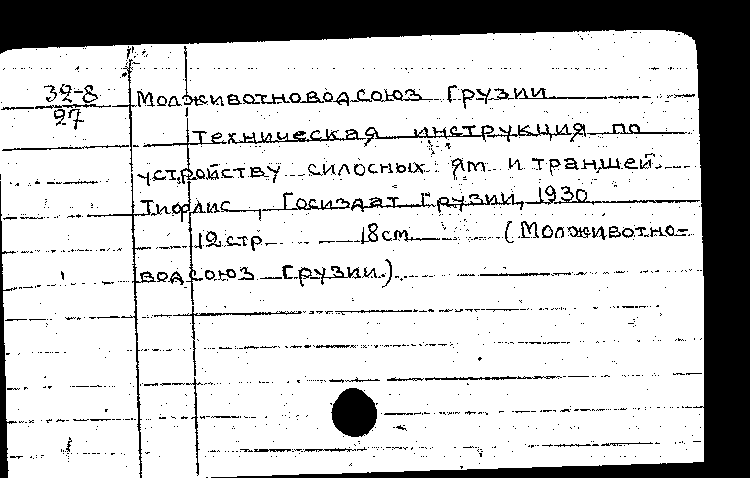 32-8
27
Молживотноводсоюз Грузии
Техническая инструкция по
устройству силосных ям и траншей.
Тифлис, Госиздат Грузии, 1930
12 стр. 18 см. (Молживотно-
водсоюз Грузии.)